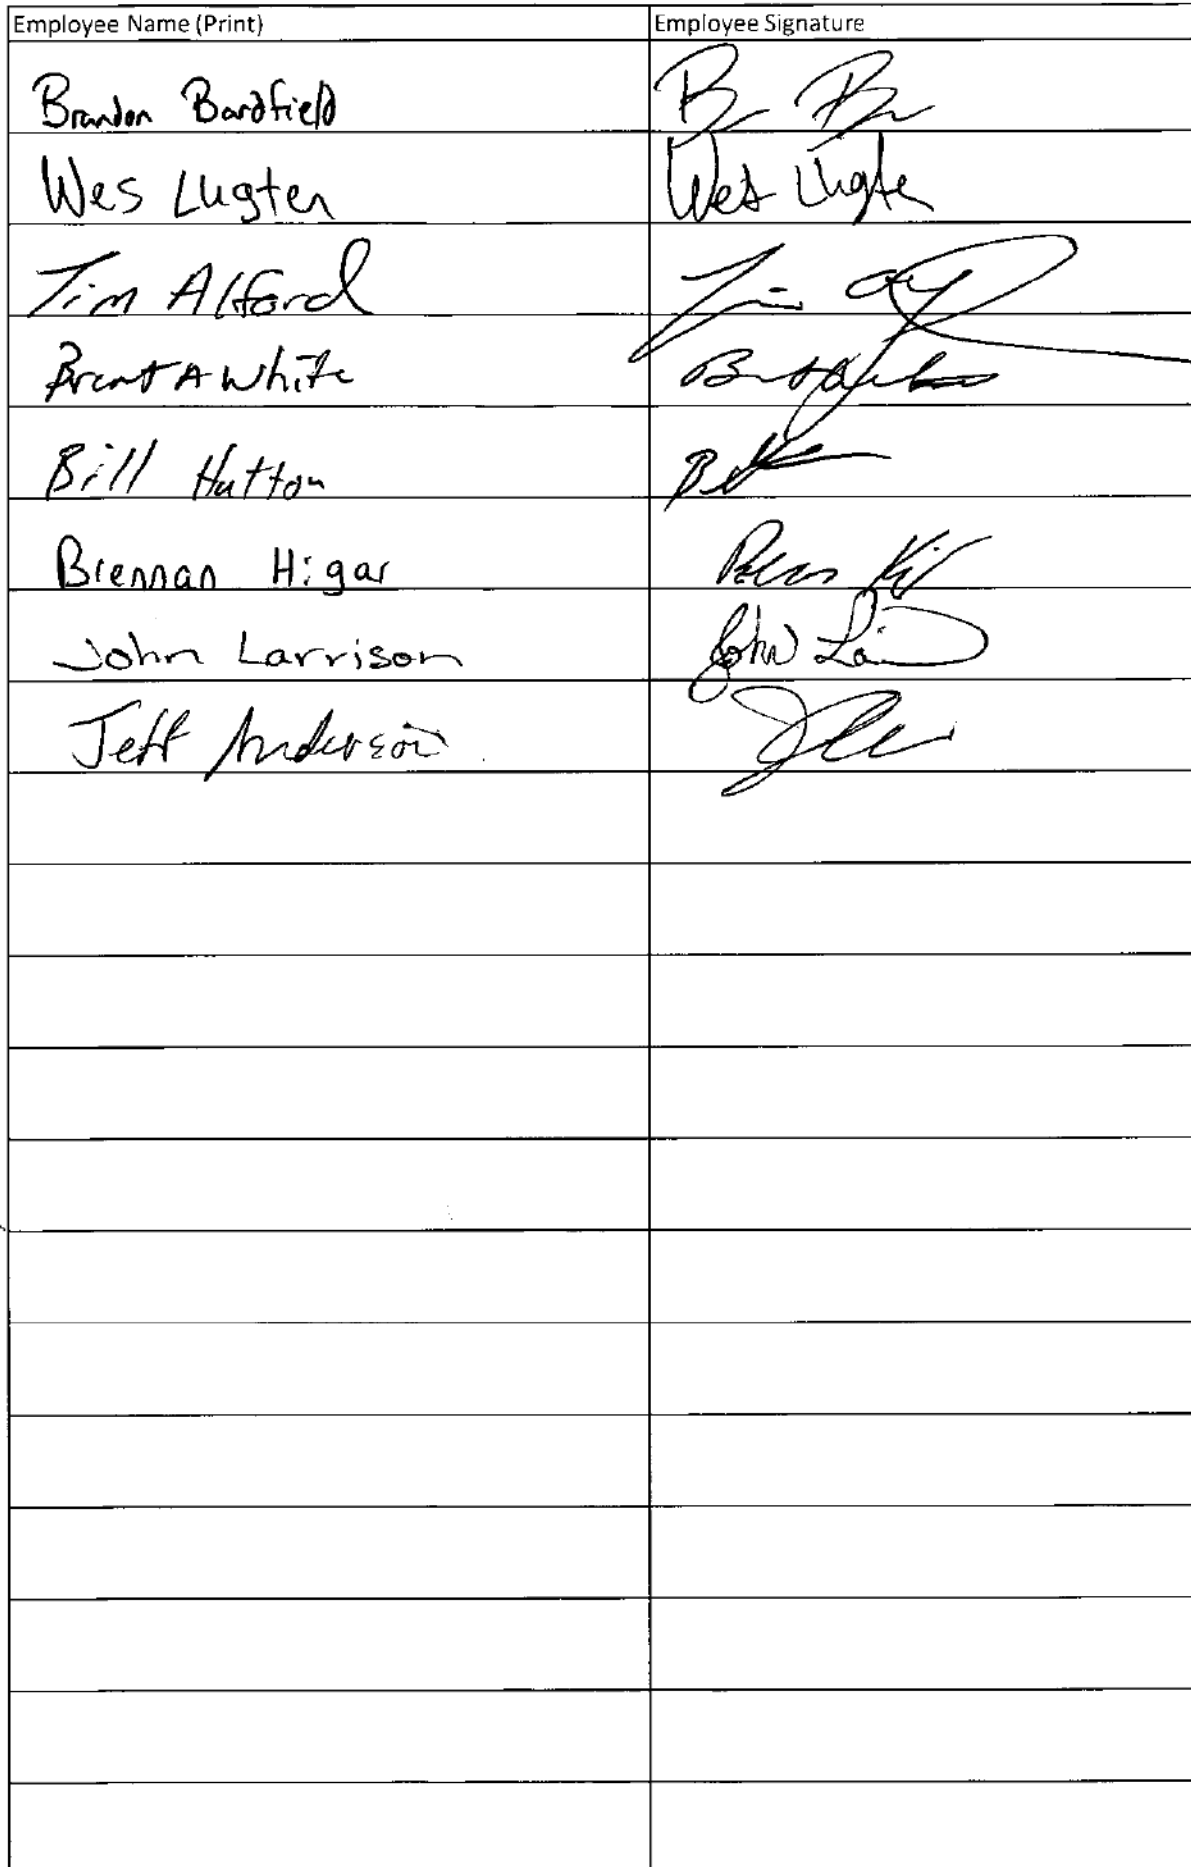 Employee Name (Print) Employee Signature
Brandon Bardfield
Wes Lugten Wes Lugten
Tim Alford Tim
Brent A White
Bill Hutton
Brennan Higar
John Larrison John
Jeff Anderson